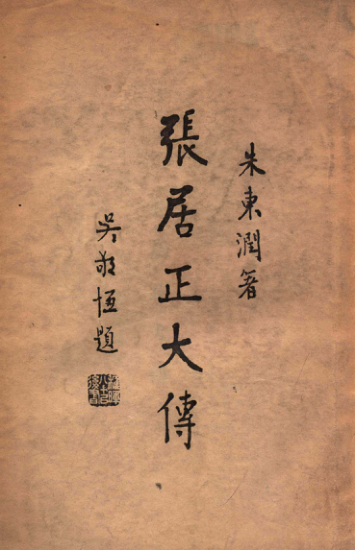 朱東潤著
張居正大傳
吳敬恆題